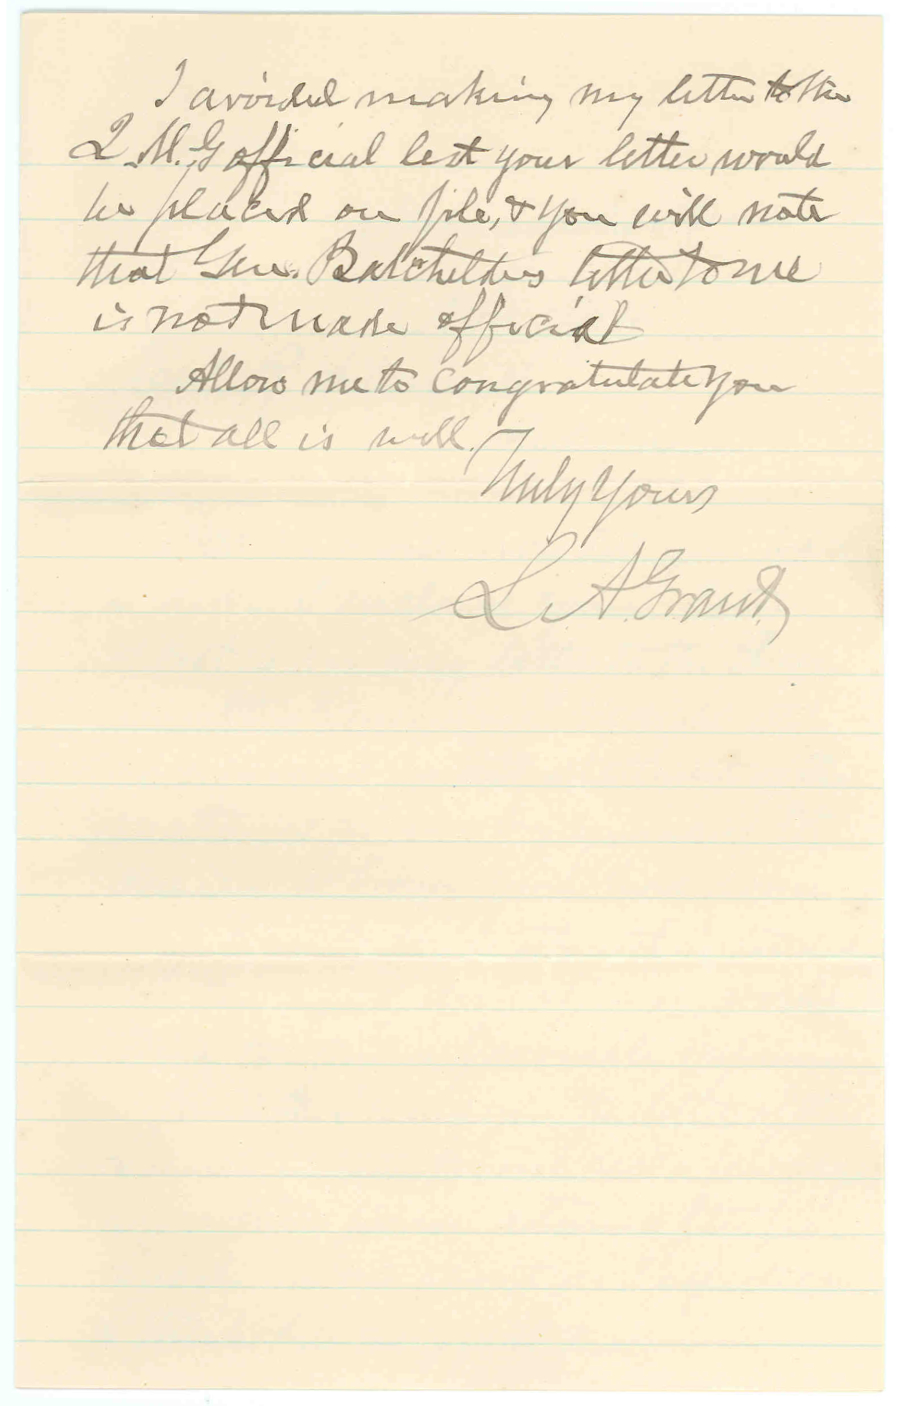 I avoided making my letter to the
Q.M.G official lest your letter would
be placed on file, & you will note
that Gen. Batchelders letter to me
is not made official
Allow me to congratulate you
that all is well.
Truly Yours
L. A. Grant.